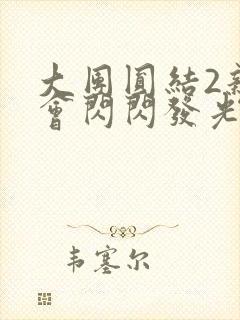 大團圓結2新
會閃閃發光
韦塞尔